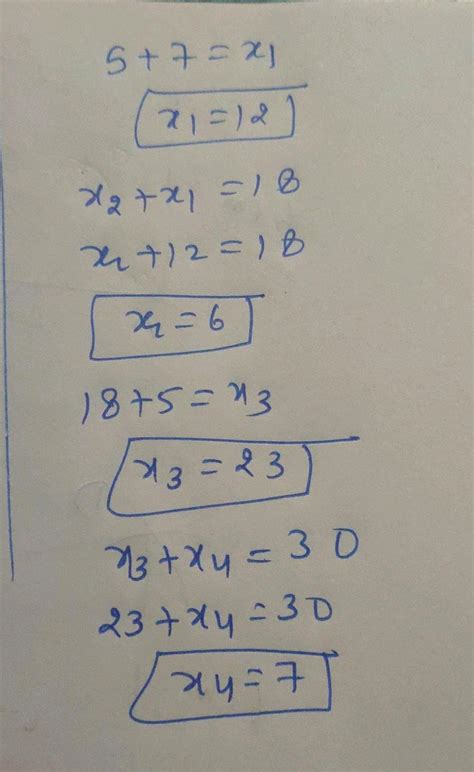 5 + 7 = x1
x1 = 12
x2 + x1 = 18
x2 + 12 = 18
x2 = 6
18 + 5 = x3
x3 = 23
x3 + x4 = 30
23 + x4 = 30
x4 = 7